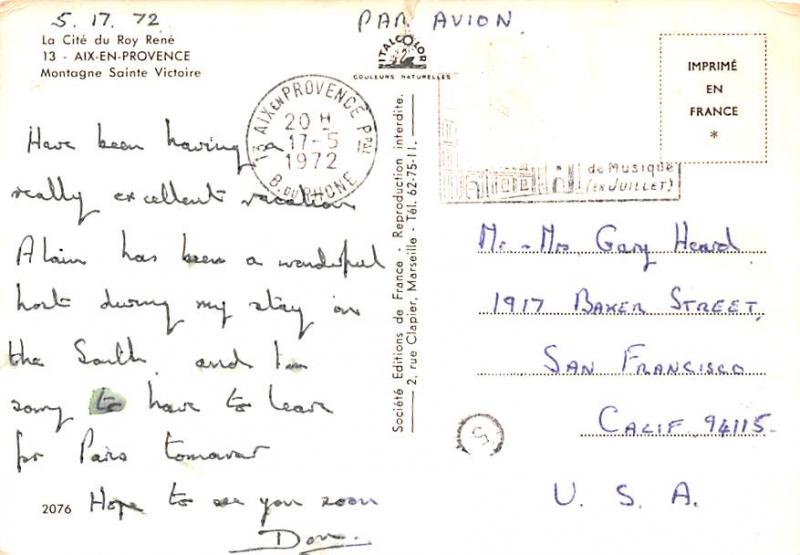 5. 17. 72
PAR AVION
La Cité du Roy René
13 - AIX-EN-PROVENCE
Montagne Sainte Victoire
ITALCOLOR
COULEURS NATURELLES
IMPRIMÉ
EN
FRANCE
*
13 AIX EN PROVENCE PPAL
20 H
17-5
1972
B. DU RHONE
de Musique
(EN JUILLET)
Have been having a
really excellent vacation
Alain has been a wonderful
host during my stay in
the South, and I'm
sorry to have to leave
for Paris tomorrow
Hope to see you soon
Don.
2076
Société Editions de France - Reproduction interdite.
2, rue Clapier, Marseille - Tél. 62-75-11.
Mr - Mrs Gary Heard
1917 BAKER STREET,
SAN FRANCISCO
CALIF 94115-
U. S. A.
5